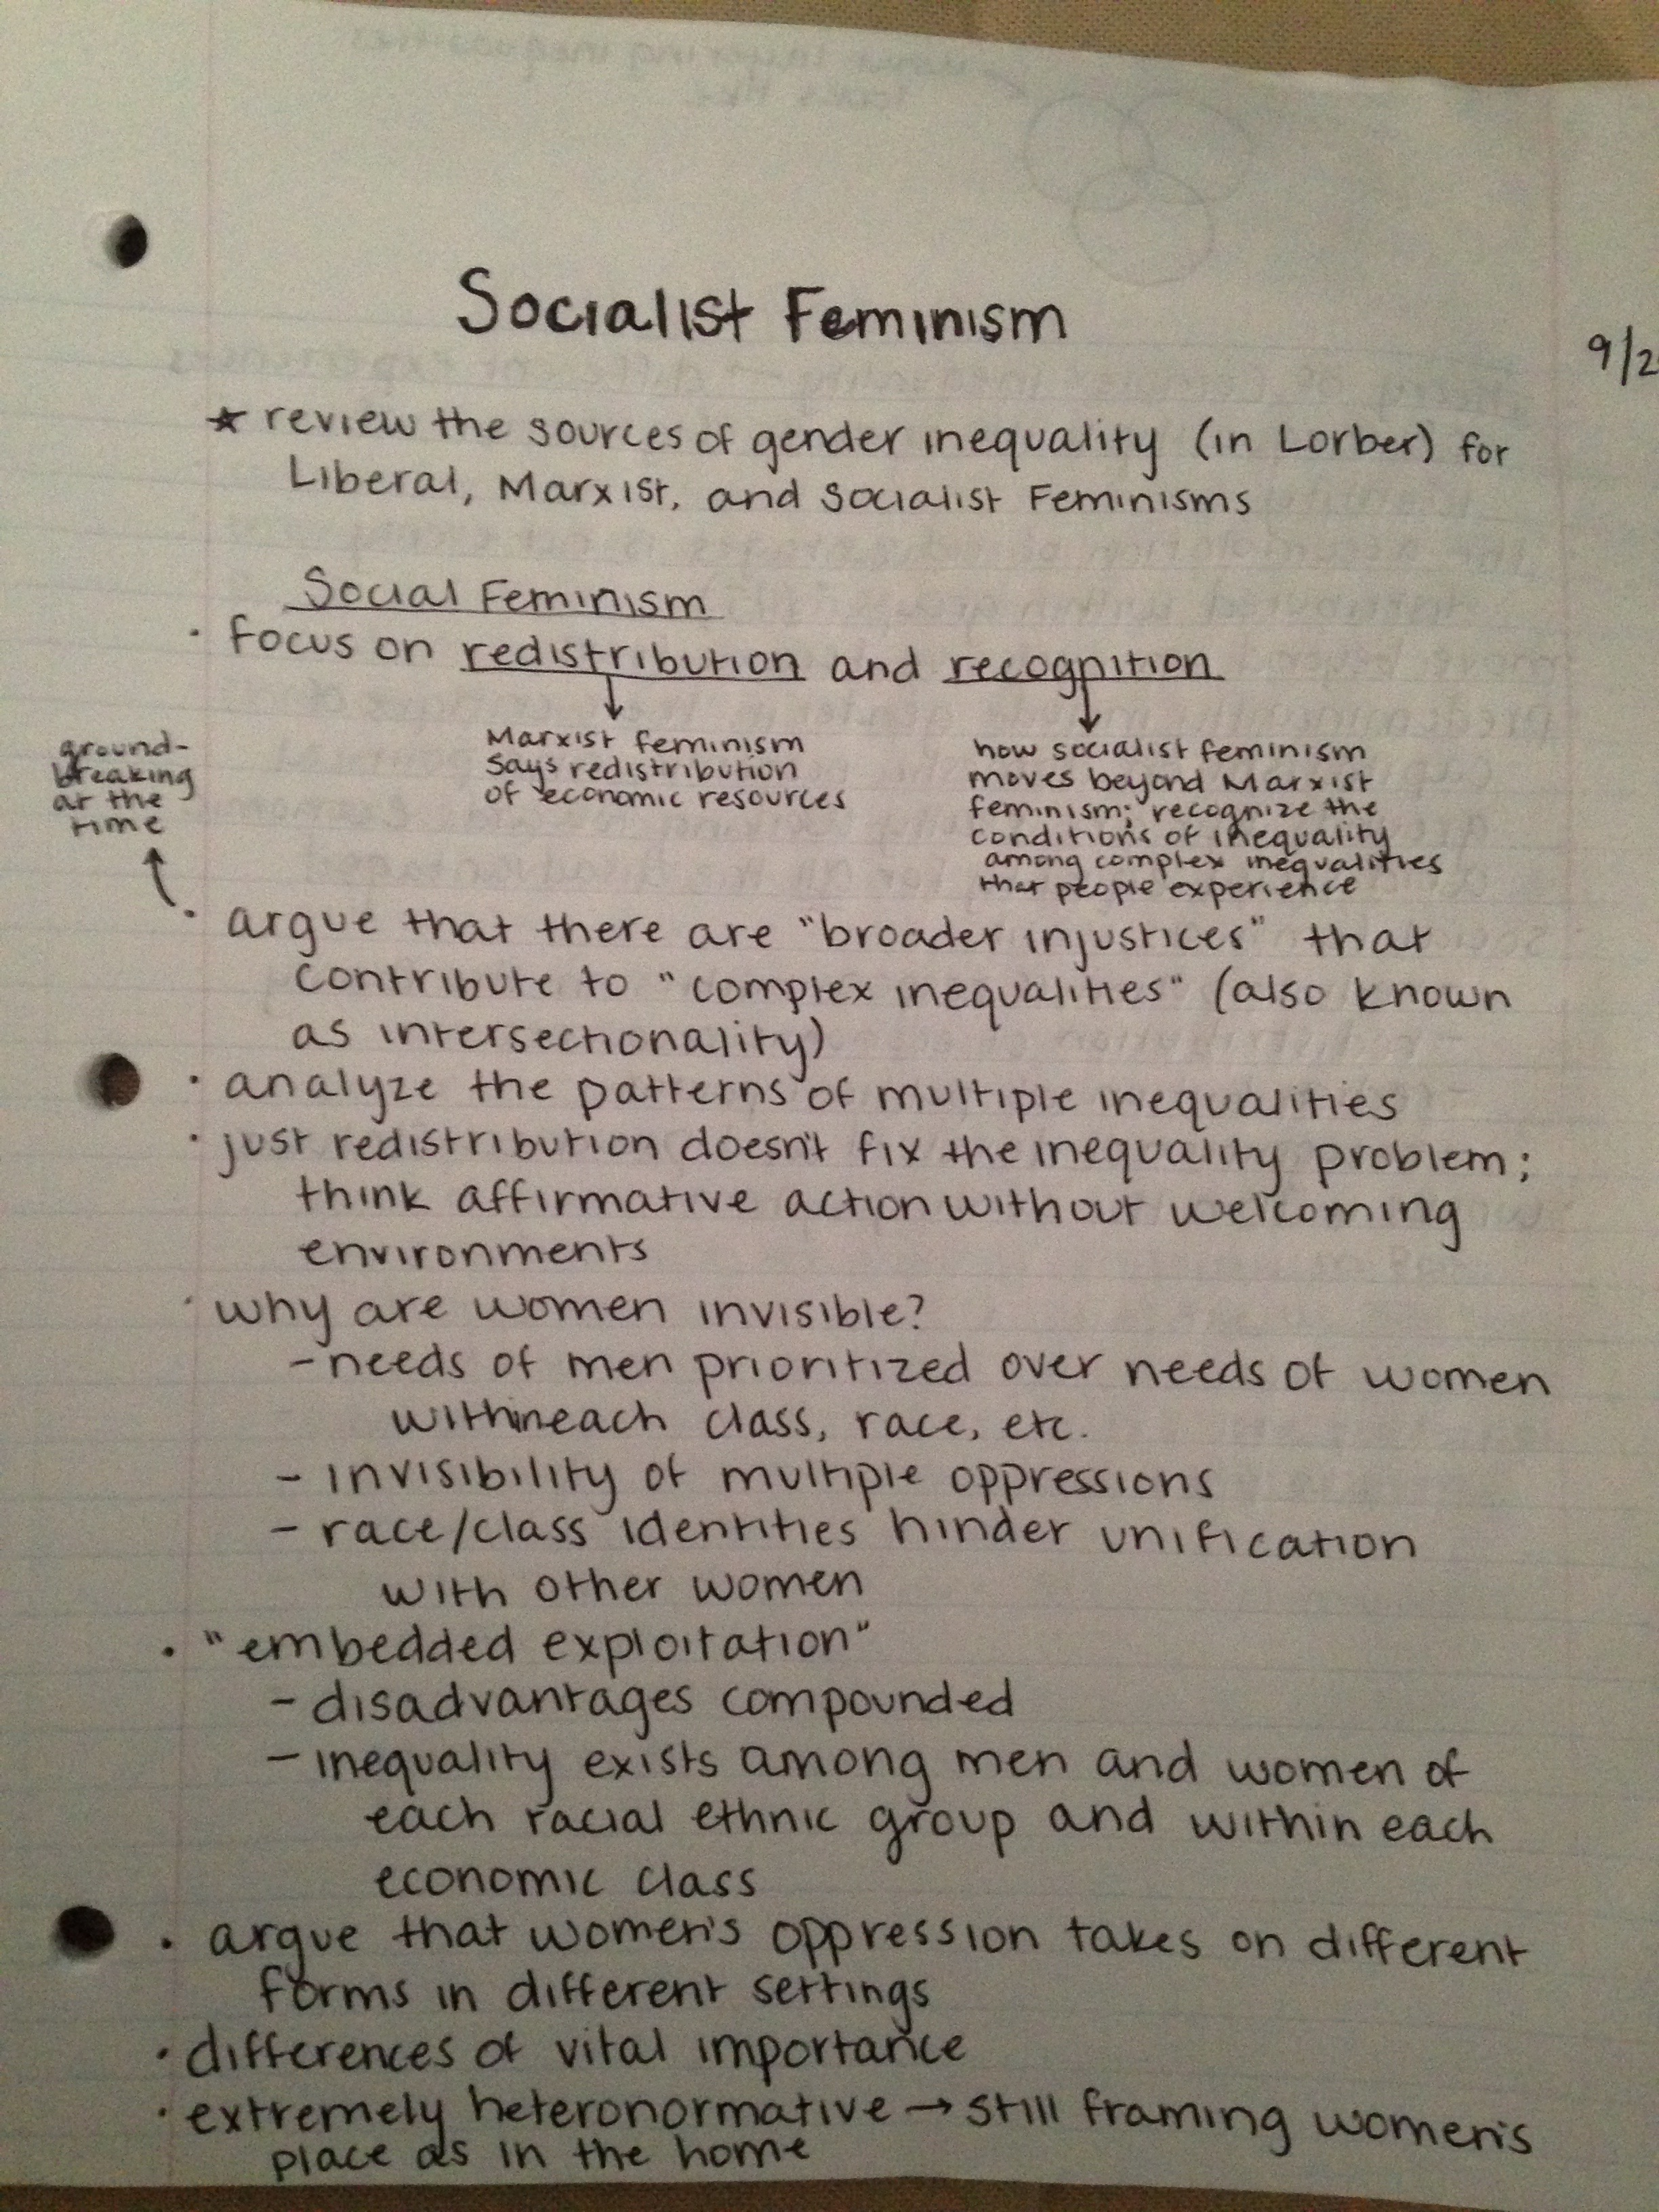 Socialist Feminism
9/2
★ review the sources of gender inequality (in Lorber) for
Liberal, Marxist, and Socialist Feminisms
Social Feminism
· focus on redistribution and recognition
Marxist feminism
says redistribution
of economic resources
how socialist feminism
moves beyond Marxist
feminism; recognize the
conditions of inequality
among complex inequalities
that people experience
ground-
breaking
at the
time
· argue that there are "broader injustices" that
contribute to "complex inequalities" (also known
as intersectionality)
· analyze the patterns of multiple inequalities
· just redistribution doesn't fix the inequality problem;
think affirmative action without welcoming
environments
· why are women invisible?
- needs of men prioritized over needs of women
within each class, race, etc.
- invisibility of multiple oppressions
- race/class identities hinder unification
with other women
· "embedded exploitation"
- disadvantages compounded
- inequality exists among men and women of
each racial ethnic group and within each
economic class
· argue that women's oppression takes on different
forms in different settings
· differences of vital importance
· extremely heteronormative → still framing women's
place as in the home